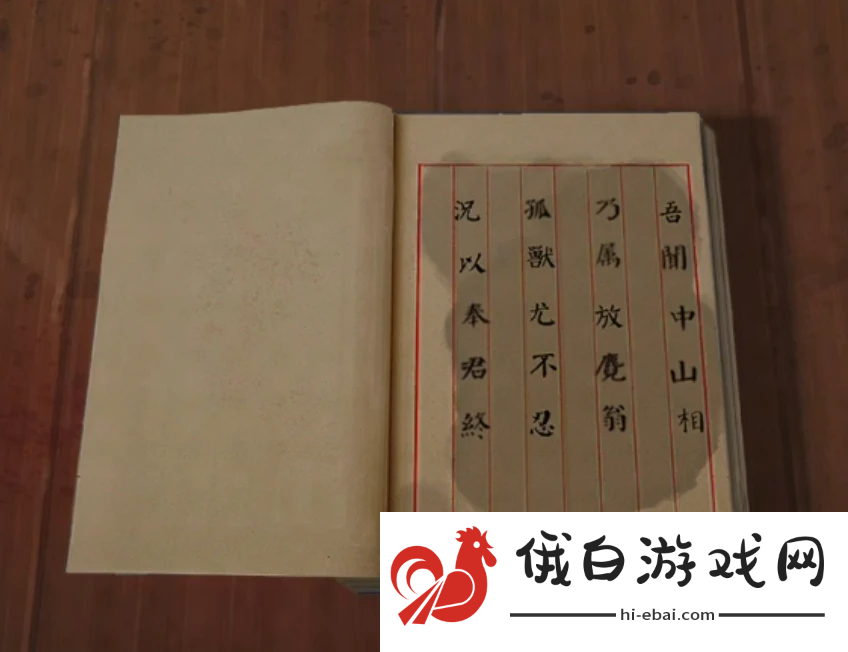 吾聞中山相
乃属放麑翁
孤獸尤不忍
況以奉君終
俄白游戏网
hi-ebai.com